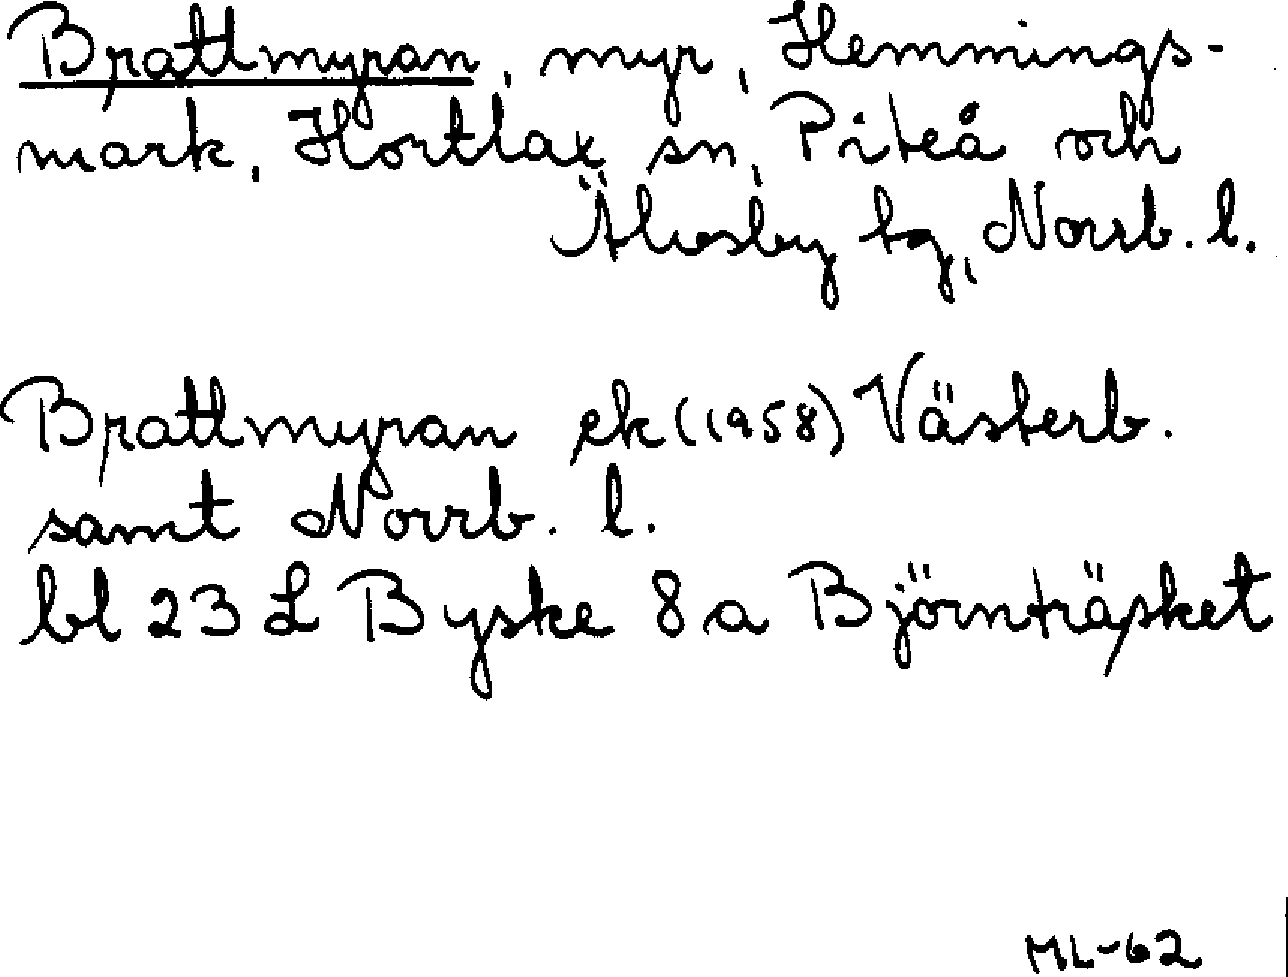 Brattmyran, myr, Hemmings-
mark, Hortlax sn, Piteå och
Älvsby tg, Norrb. l.
Brattmyran ek (1958) Västerb.
samt Norrb. l.
bl 23 L Byske 8a Björnträsket
ML-62